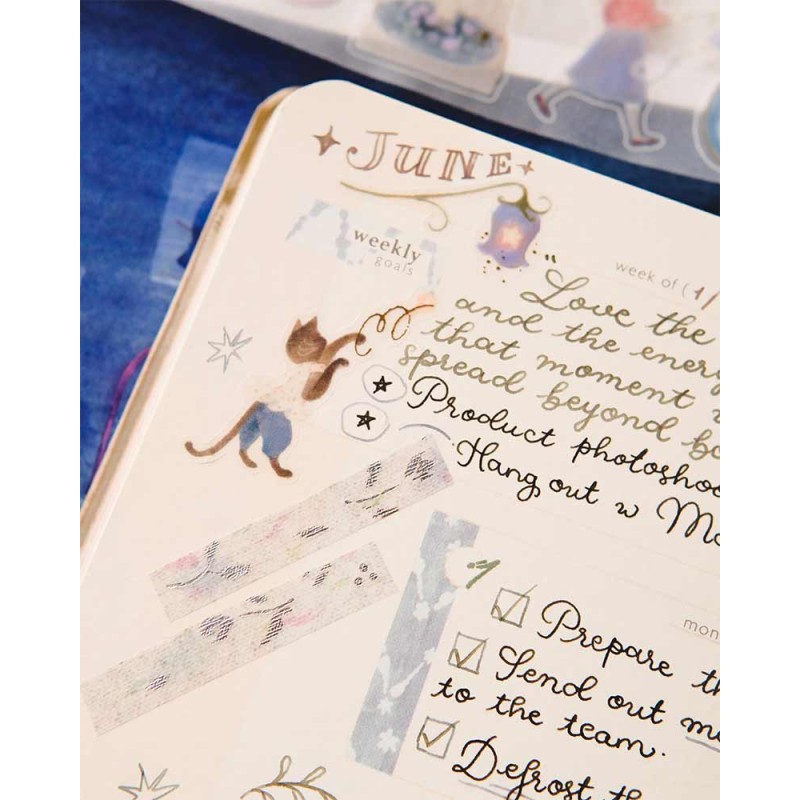 JUNE
weekly
goals
week of ( 1/
"Love the
and the energy
that moment
spread beyond
Product photoshoo
Hang out w
1
mon
Prepare
Send out
to the team.
Defrost